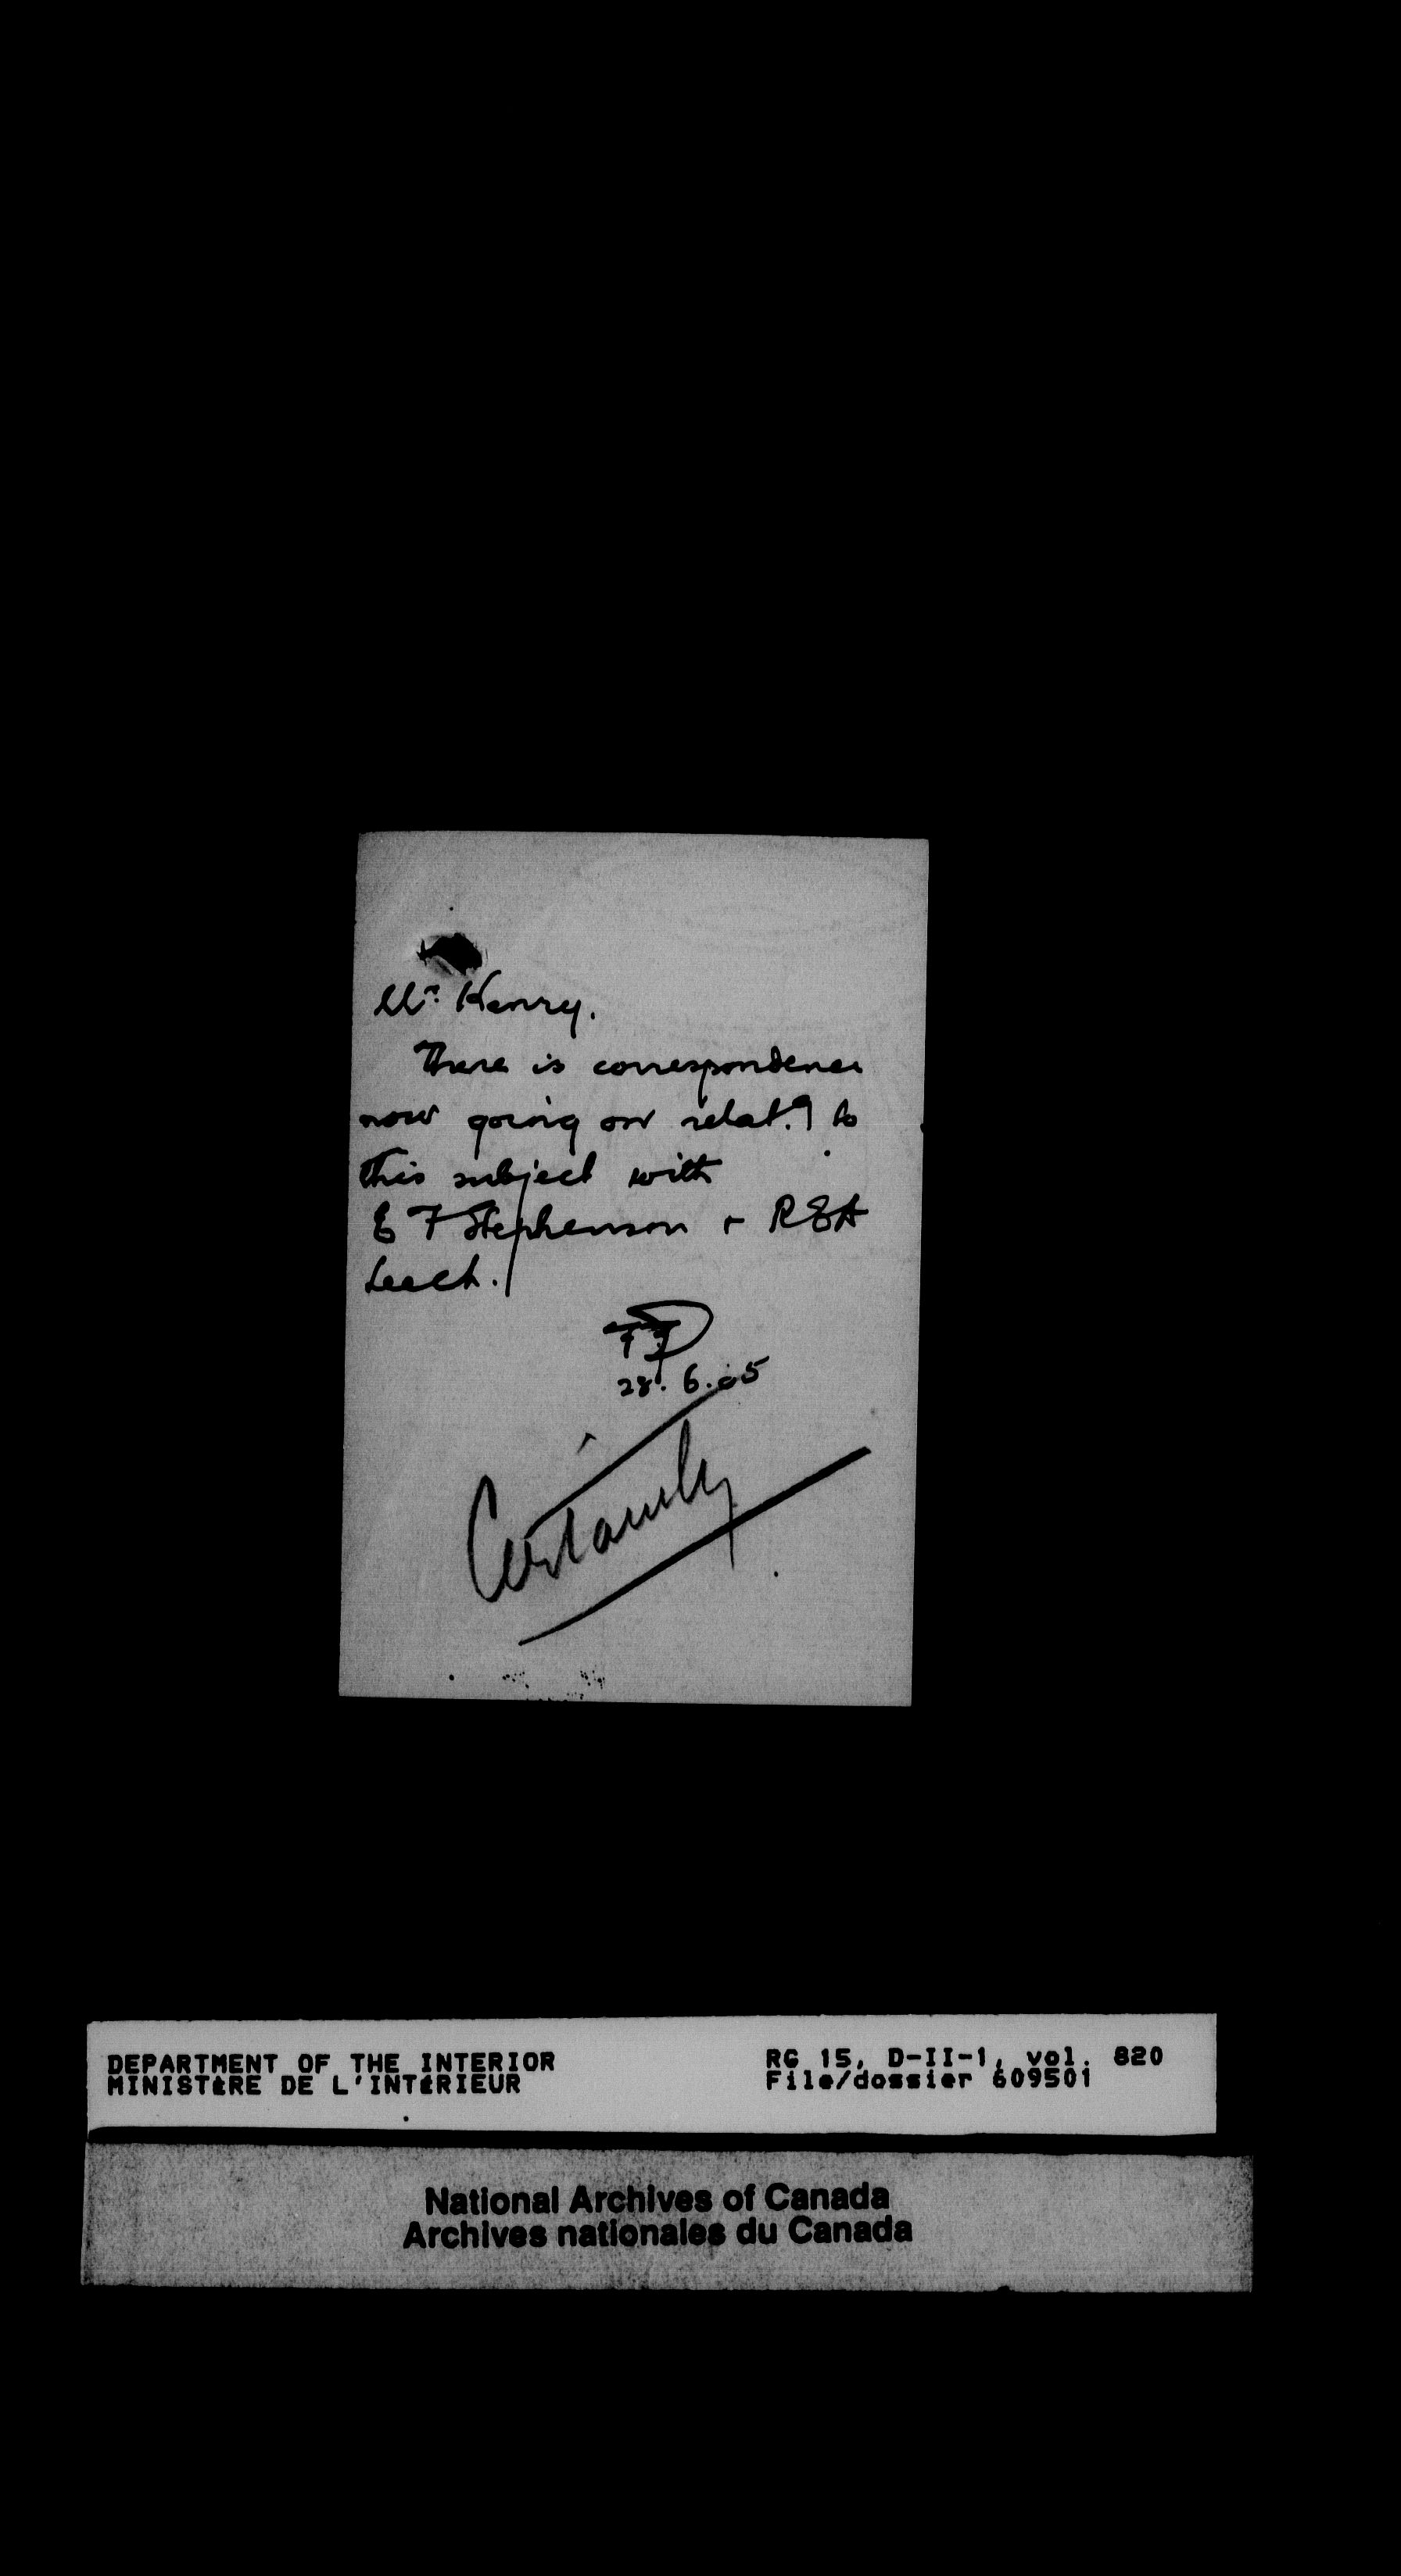 Mr. Henry.
There is correspondence
now going on relat.g to
this subject with
E F Stephenson & R E A
Leech.
28.6.05
Certainly
DEPARTMENT OF THE INTERIOR
MINISTÈRE DE L'INTÉRIEUR
RG 15, D-II-1, vol. 820
File/dossier 609501
National Archives of Canada
Archives nationales du Canada